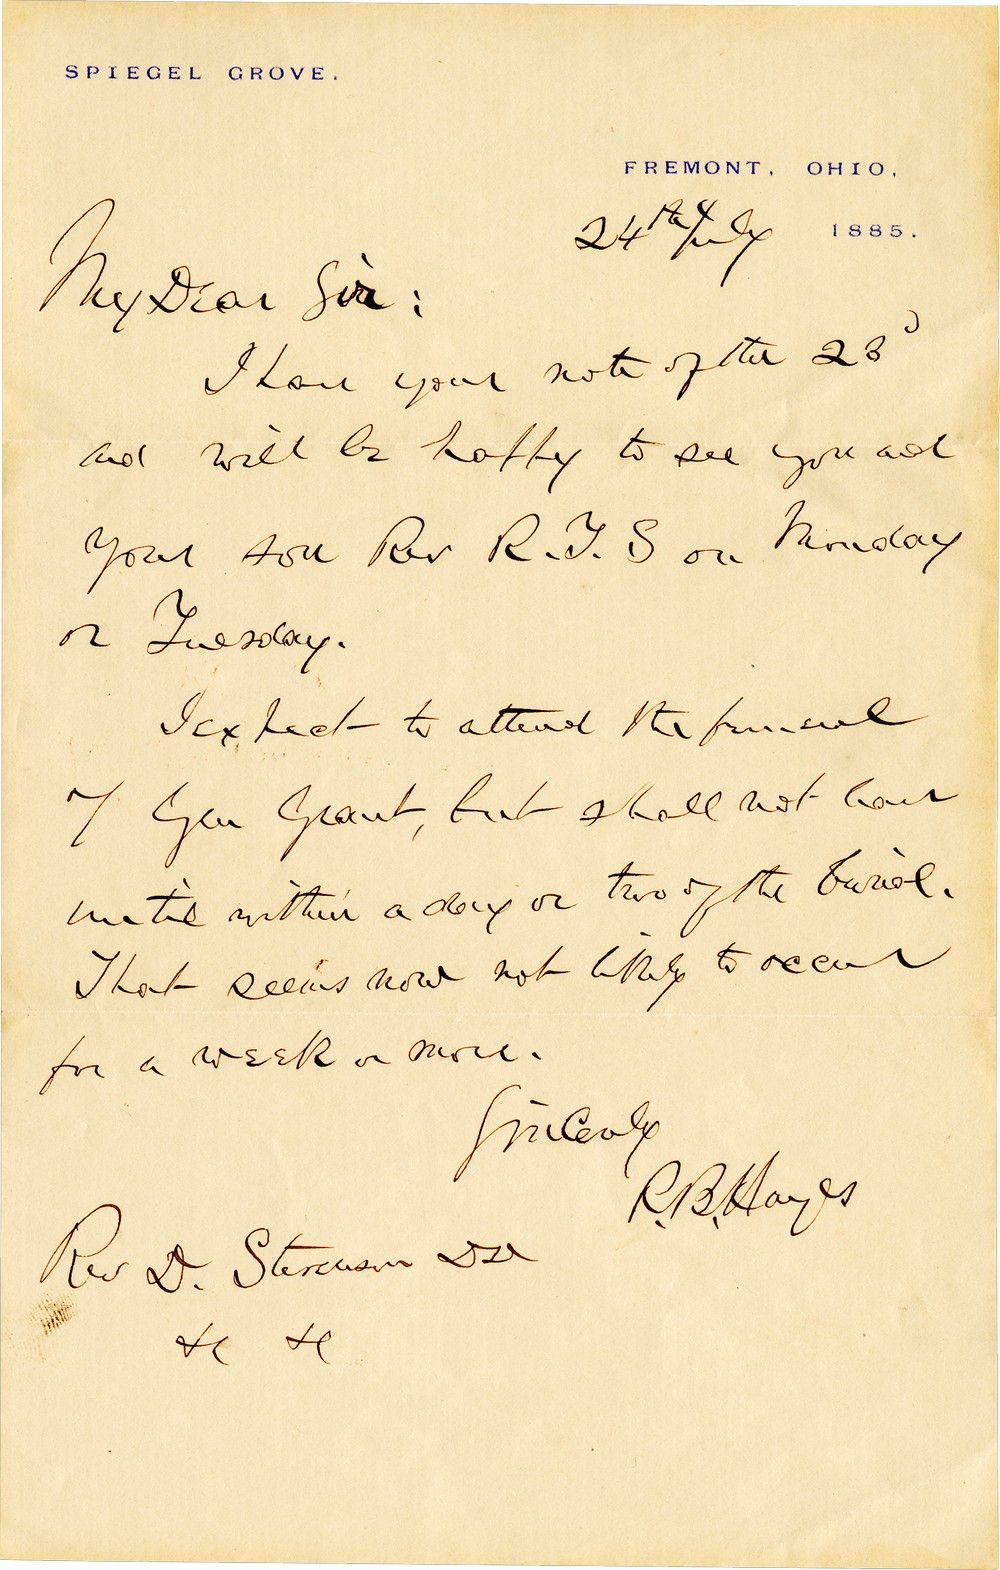 SPIEGEL GROVE.
FREMONT, OHIO,
24th July 1885.
My Dear Sir:
I have your note of the 23d
and will be happy to see you and
your son Rev R.T.S on Monday
or Tuesday.
I expect to attend the funeral
of Gen Grant, but shall not leave
until within a day or two of the burial.
That seems now not likely to occur
for a week or more.
Sincerely
R.B.Hayes
Rev D. Stevenson
&c &c